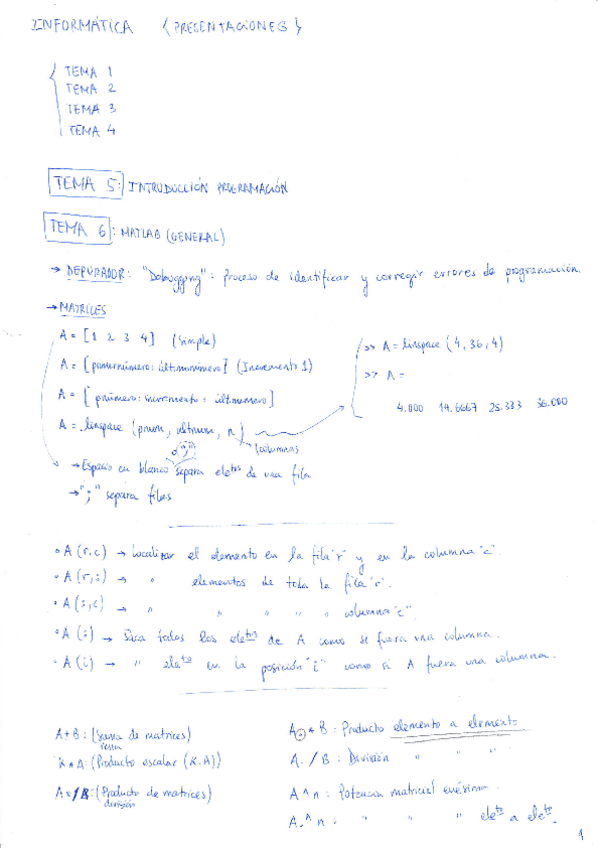 INFORMÁTICA {PRESENTACIONES}
TEMA 1
TEMA 2
TEMA 3
TEMA 4
TEMA 5: INTRODUCCIÓN PROGRAMACIÓN
TEMA 6: MATLAB (GENERAL)
→ DEPURADOR: "Debugging": proceso de identificar y corregir errores de programación.
→ MATRICES
A = [1 2 3 4] (simple)
A = [primernúmero: últimonúmero] (Incremento 1)
A = [pnúmero: incremento: últnumero]
A = linspace (pnum, ultnum, n)
columnas
>> A = linspace (4, 36, 4)
>> A =
4.000 14.6667 25.333 36.000
→ Espacio en blanco o "," separa eletos de una fila
→ ";" separa filas
• A (r,c) → Localizar el elemento en la fila "r" y en la columna "c".
• A (r,:) → " elementos de toda la fila "r".
• A (:,c) → " " " " " columna "c".
• A (:) → Saca todos los eletos de A como si fuera una columna.
• A (i) → " eleto en la posición "i" como si A fuera una columna.
A+B: (Suma de matrices)
resta
K*A: (Producto escalar (K.A))
A*/B: (Producto de matrices)
división
A.*B: Producto elemento a elemento
A./B: División " " "
A^n: Potencia matricial enésima.
A.^n: " " " eleto a eleto.
1